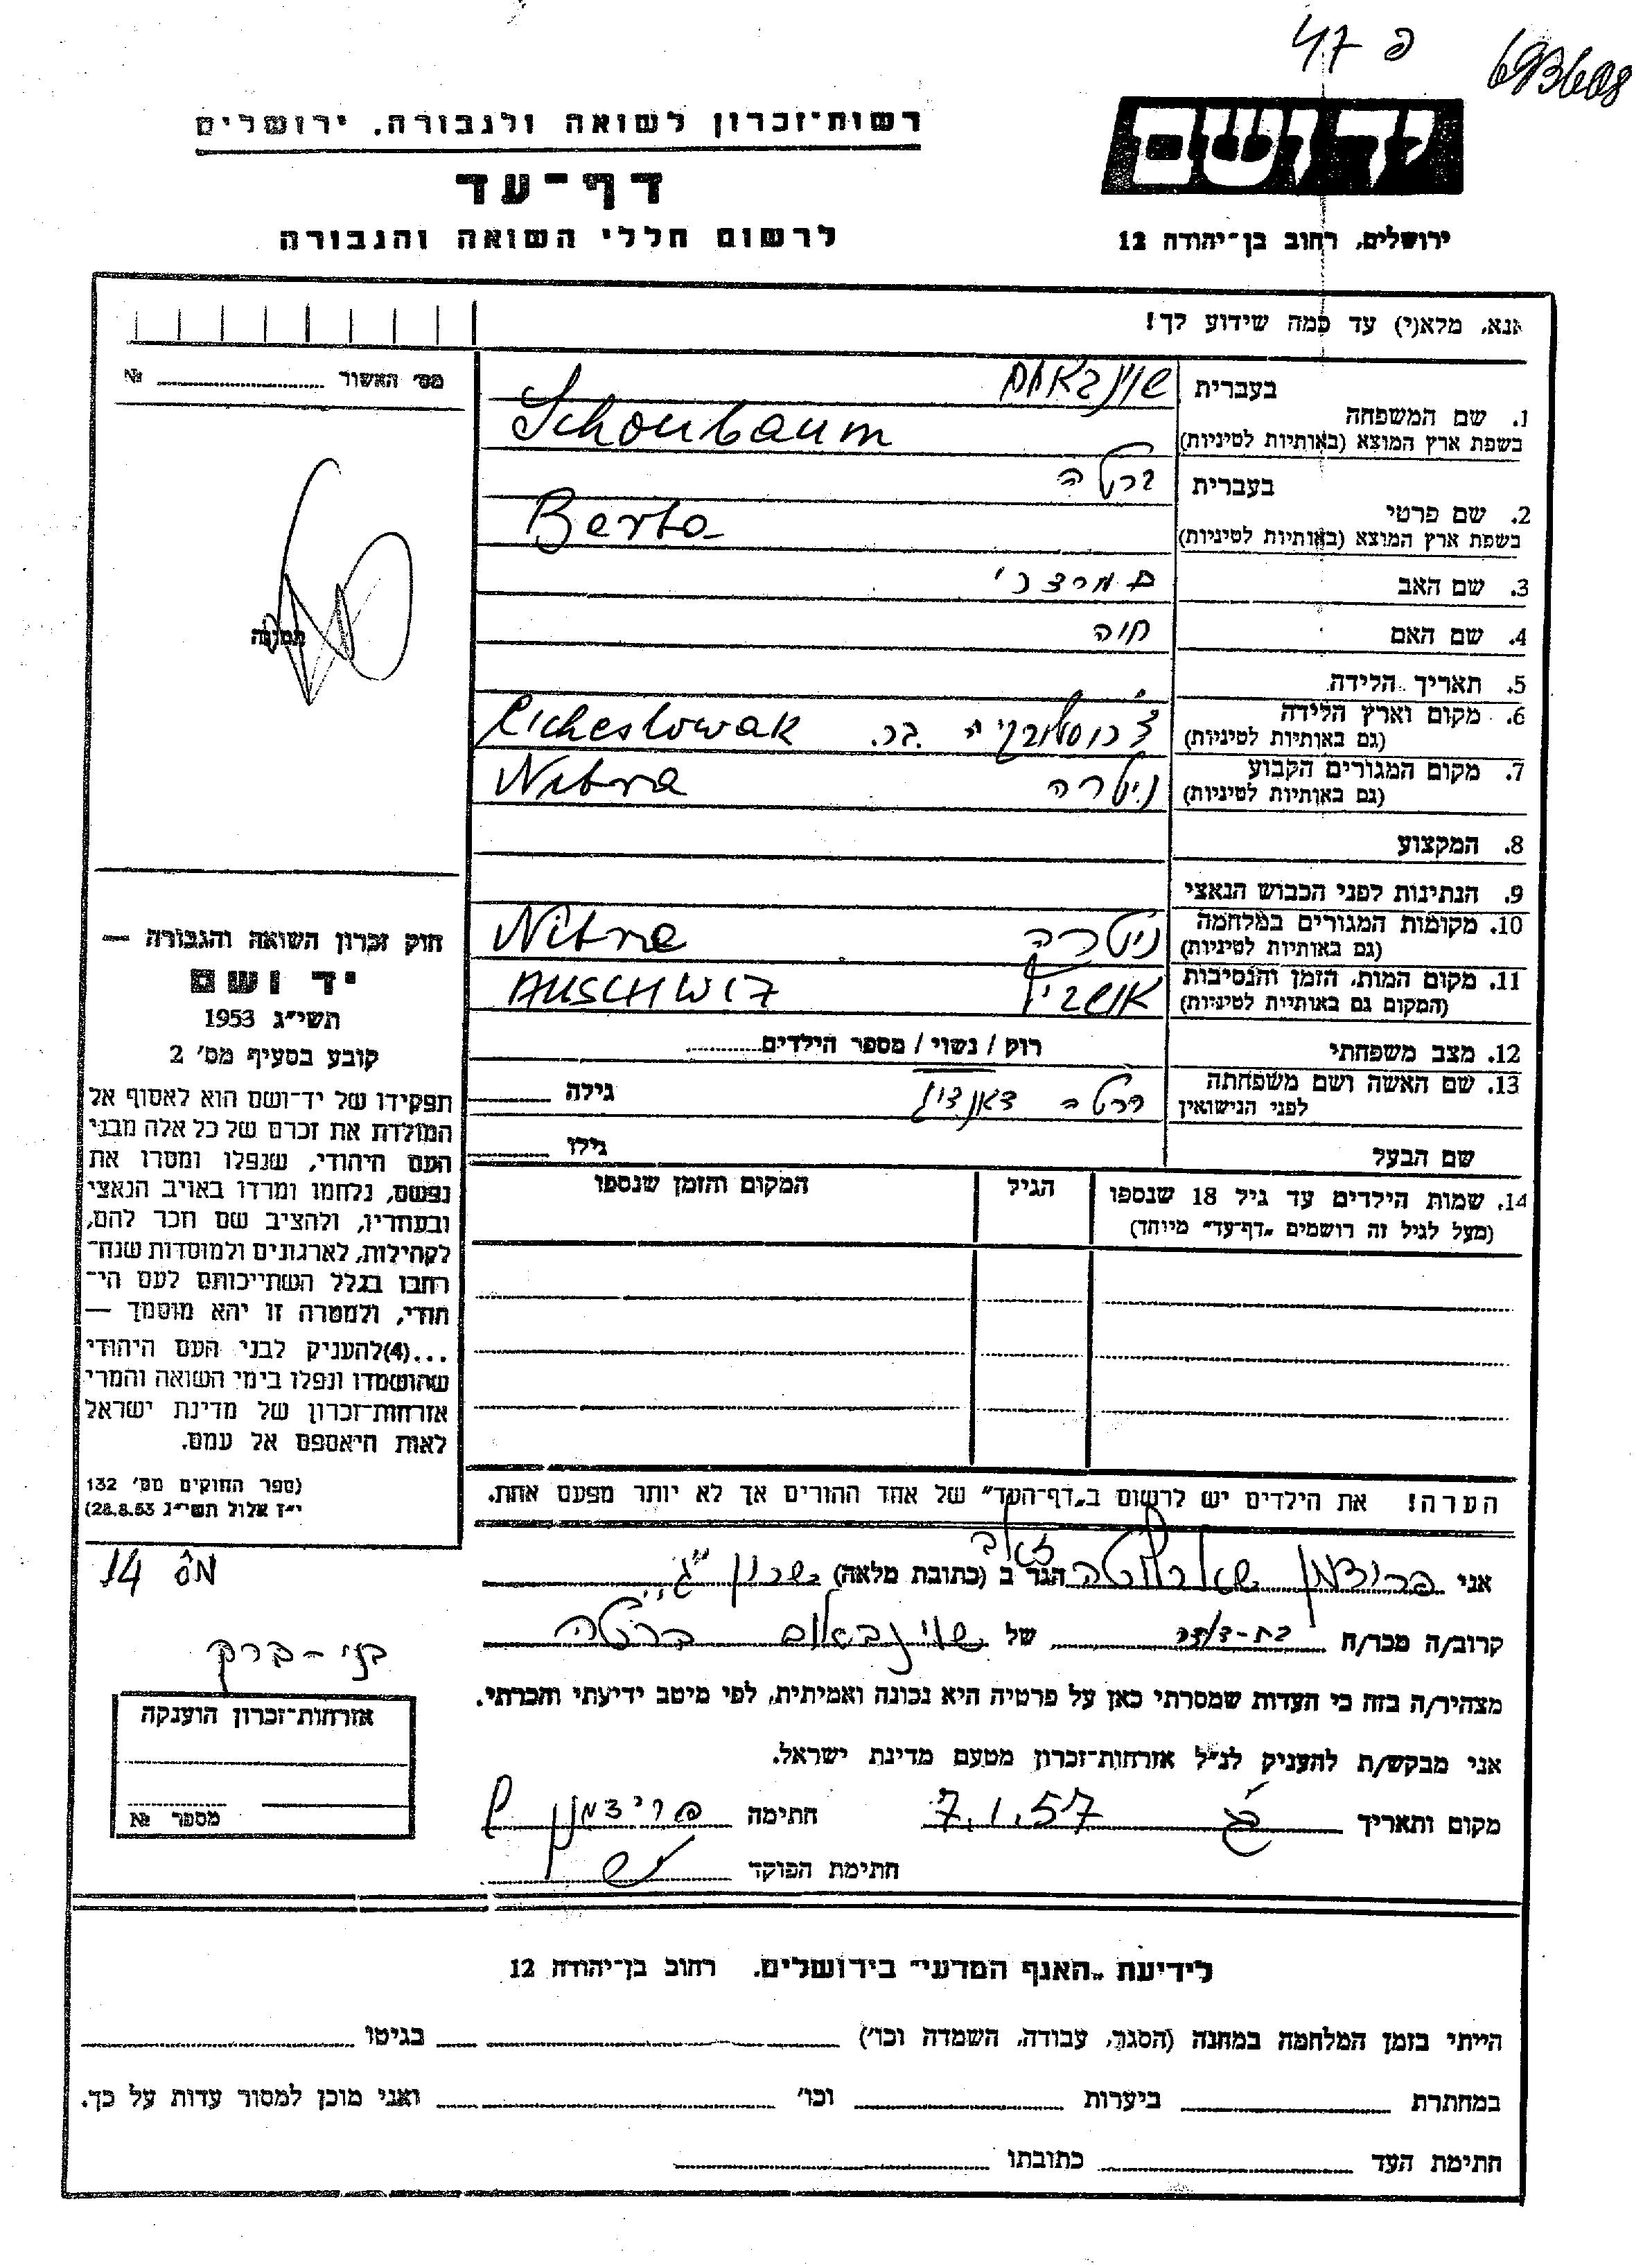 פ 47
693608
יד ושם
רשות־זכרון לשואה ולגבורה, ירושלים
דף־עד
ירושלים, רחוב בן־יהודה 12
לרשום חללי השואה והגבורה
אנא, מלא(י) עד כמה שידוע לך!
מס׳ האשור № ............
1. שם המשפחה בעברית שוינבאום
בשפת ארץ המוצא (באותיות לטיניות) Schonbaum
2. שם פרטי בעברית ברטה
בשפת ארץ המוצא (באותיות לטיניות) Berta
3. שם האב מרדכי
4. שם האם חוה
5. תאריך הלידה
6. מקום וארץ הלידה
(גם באותיות לטיניות)
7. מקום המגורים הקבוע ניטרה Nitra
(גם באותיות לטיניות)
8. המקצוע
9. הנתינות לפני הכבוש הנאצי
10. מקומות המגורים במלחמה ניטרה Nitra
(גם באותיות לטיניות)
11. מקום המות, הזמן והנסיבות אושביץ AUSCHWIZ
(המקום גם באותיות לטיניות)
12. מצב משפחתי רוק / נשוי / מספר הילדים............
13. שם האשה ושם משפחתה ברטה גילה
לפני הנישואין
שם הבעל גילו
14. שמות הילדים עד גיל 18 שנספו הגיל המקום והזמן שנספו
(מעל לגיל זה רושמים „דף־עד״ מיוחד)
הערה! את הילדים יש לרשום ב„דף־העד״ של אחד ההורים אך לא יותר מפעם אחת.
תמונה
חוק זכרון השואה והגבורה —
יד ושם
תשי״ג 1953
קובע בסעיף מס׳ 2
תפקידו של יד־ושם הוא לאסוף אל
המולדת את זכרם של כל אלה מבני
העם היהודי, שנפלו ומסרו את
נפשם, נלחמו ומרדו באויב הנאצי
ובעוזריו, ולהציב שם וזכר להם,
לקהילות, לארגונים ולמוסדות שנח־
רבו בגלל השתייכותם לעם הי־
הודי, ולמטרה זו יהא מוסמך —
...(4)להעניק לבני העם היהודי
שהושמדו ונפלו בימי השואה והמרי
אזרחות־זכרון של מדינת ישראל
לאות היאספם אל עמם.
(ספר החוקים מס׳ 132
י״ז אלול תשי״ג 28.8.53)
אני פרידמן שארלוטה הגר ב (כתובת מלאה)
14
קרוב/ה מכר/ה בת-דודה של שוינבאום ברטה
בני-ברק
מצהיר/ה בזה כי העדות שמסרתי כאן על פרטיה היא נכונה ואמיתית, לפי מיטב ידיעתי והכרתי.
אני מבקש/ת להעניק לנ״ל אזרחות־זכרון מטעם מדינת ישראל.
מקום ותאריך 7.1.57 חתימה פרידמן ש
חתימת הפוקד
אזרחות־זכרון הוענקה
מספר №
לידיעת „האגף המדעי״ בירושלים, רחוב בן־יהודה 12
הייתי בזמן המלחמה במחנה (הסגר, עבודה, השמדה וכו׳) בגיטו
במחתרת ביערות וכו׳ ואני מוכן למסור עדות על כך.
חתימת העד כתובתו